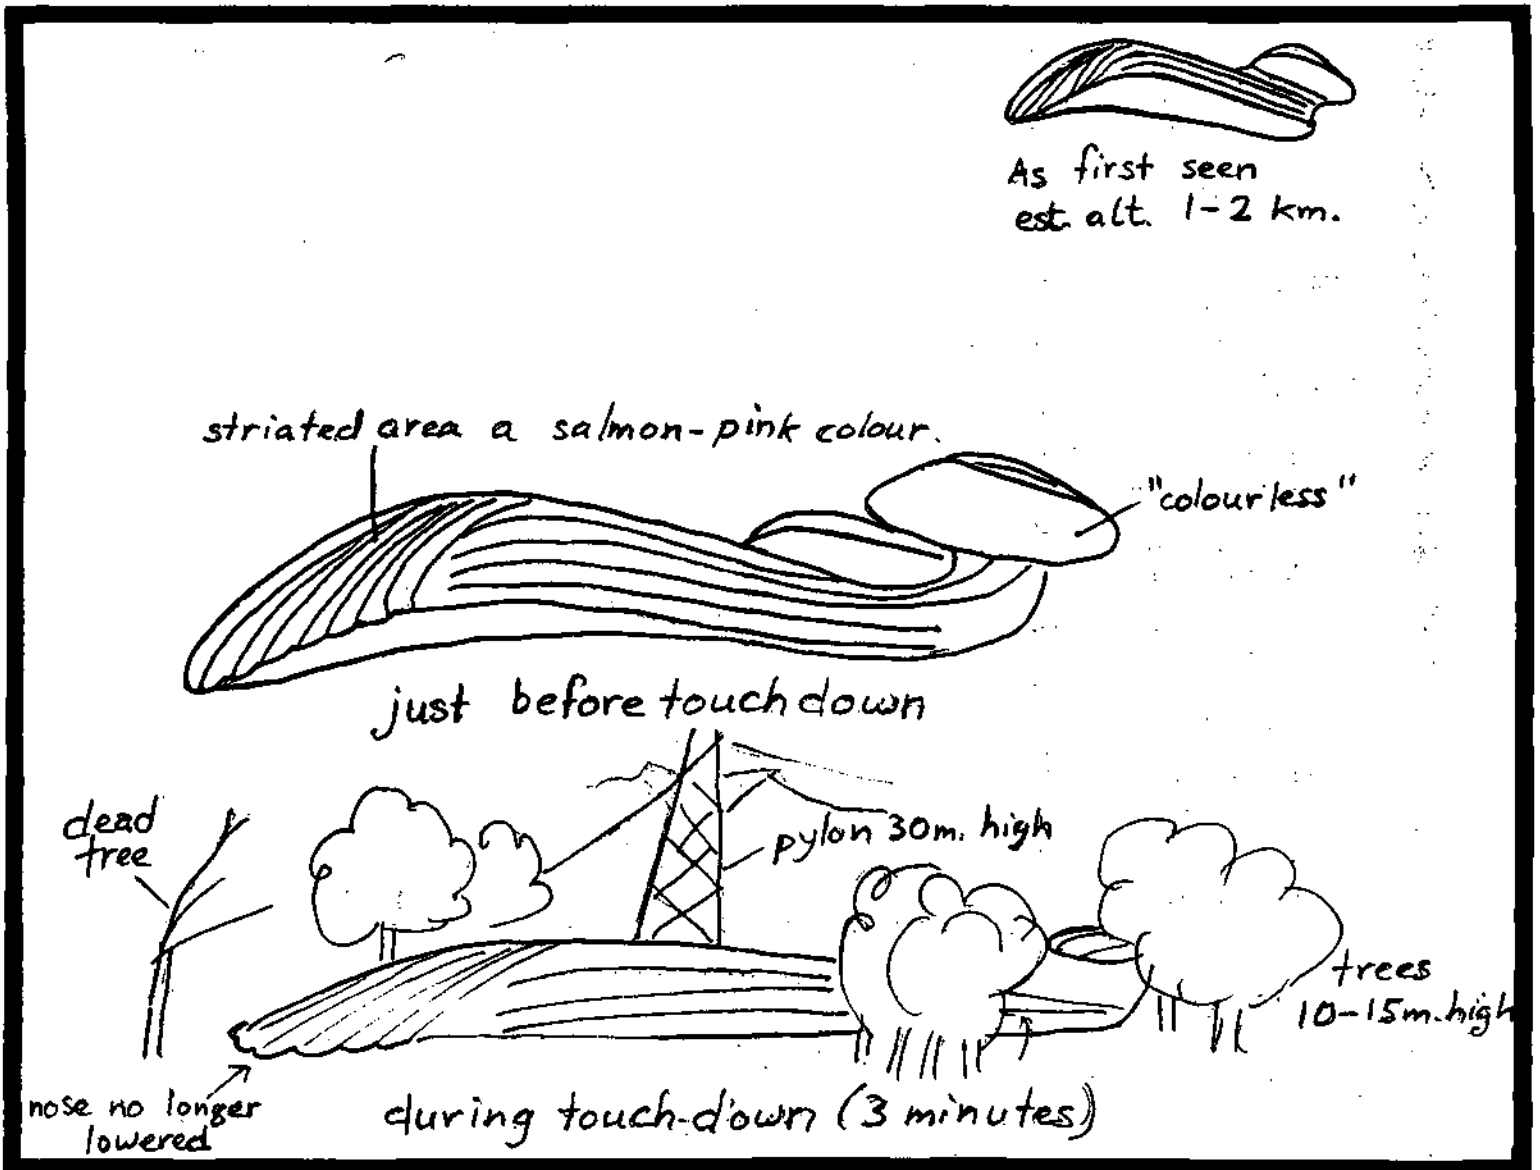 As first seen
est. alt. 1-2 km.
striated area a salmon-pink colour.
"colourless"
just before touch down
dead
tree
pylon 30m. high
trees
10-15m. high
nose no longer
lowered
during touch-down (3 minutes)